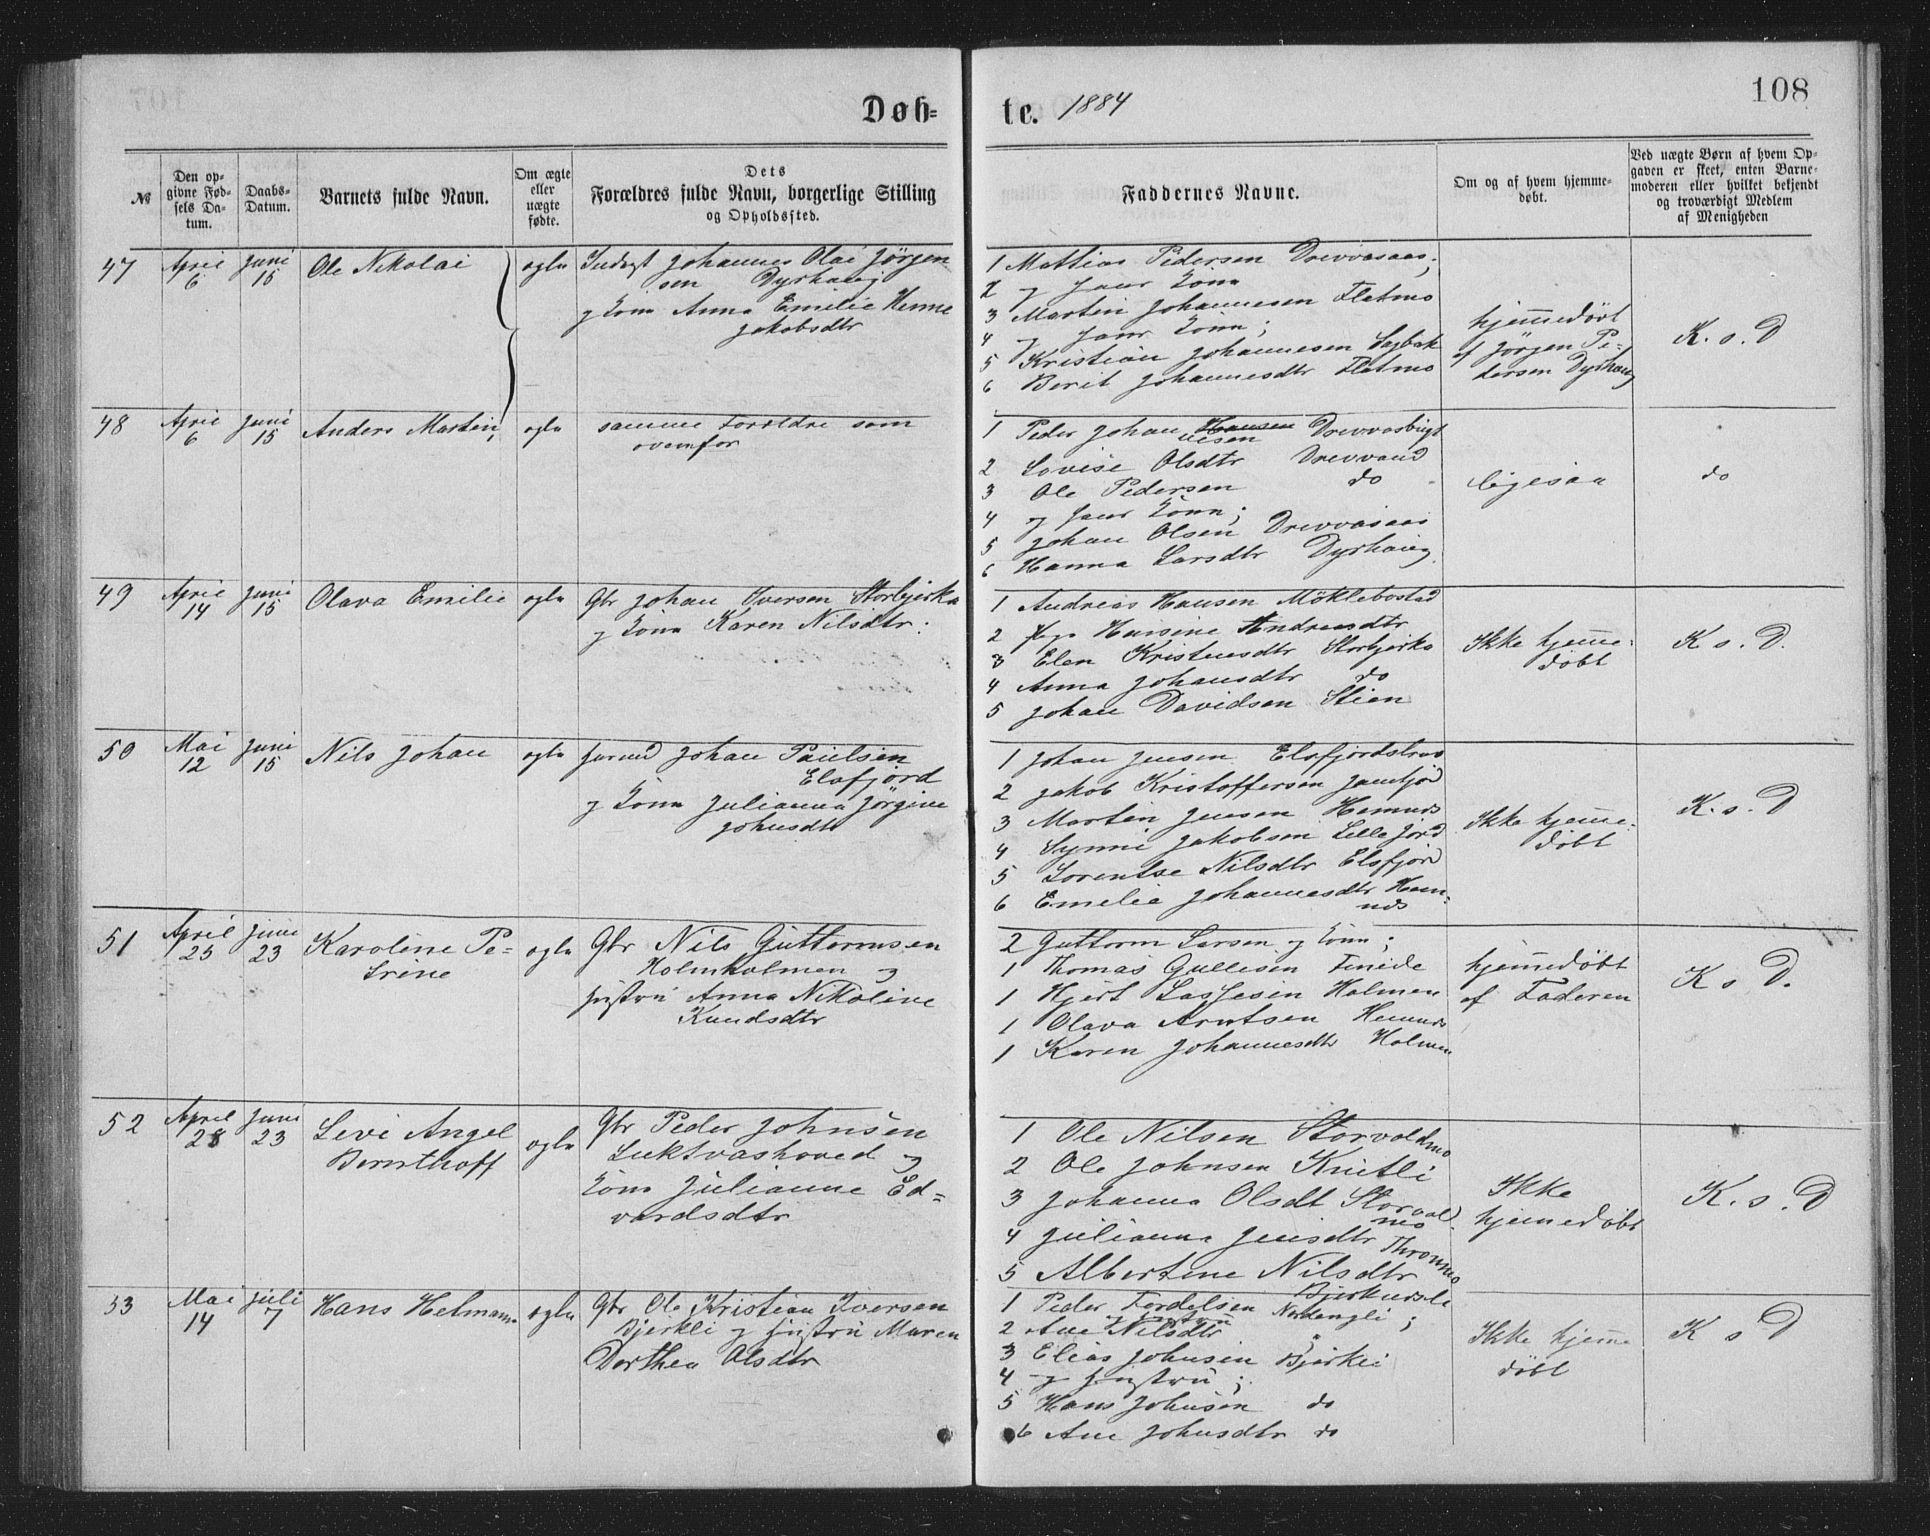 108
Døb-
te. 1884
№
Den op-
givne Fød-
sels Da-
tum.
Daabs-
Datum.
Barnets fulde Navn.
Om ægte
eller
uægte
fødte.
Dets
Forældres fulde Navn, borgerlige Stilling
og Opholdssted.
Faddernes Navne.
Om og af hvem hjemme-
døbt.
Ved uægte Børn af hvem Op-
gaven er skeet, enten Barne-
moderen eller hvilket bekjendt
og troværdigt Medlem
af Menigheden
47
April
6
Juni
15
Ole Nikolai
egte
Johannes Olai Jørgen
sen Dyrhaug
og Kona Anna Emilie Henne
Jakobsdtr
1 Mattias Pedersen Drevvasaas;
2 og hans Kona
3 Martin Johannesen Flatmo
4 og hans Kona;
5 Kristian Johannesen Sagbak
6 Berit Johannesdtr Flatmo
hjemmedøbt
af Jørgen Pe-
dersen Dyrhaug
K. s. D
48
April
6
Juni
15
Anders Martin,
egte
samme Foreldre som
ovenfor
1 Peder Johan Hansen Drevvasbugt
nesen
2 Lovise Olsdtr Drevvand
3 Ole Pedersen do
4 og hans Kona;
5 Johan Olsen Drevvasaas
6 Hanna Larsdtr Dyrhaug
ligesaa
do
49
April
14
Juni
15
Olava Emilie
egte
Gbr Johan Iversen Storbjerka
og Kona Karen Nilsdtr.
1 Andreas Hansen Möklebostad
2 Pige Hansine Andreasdtr
3 Elen Kristensdtr Storbjerka
4 Anna Johansdtr do
5 Johan Davidsen Stien
Ikke hjemme-
døbt
K s. D.
50
Mai
12
Juni
15
Nils Johan
egte
Johan Paulsen
Elsfjord
og Kona Julianna Jørgine
Johnsdtr
1 Johan Jensen Elsfjordstrand
2 Jakob Kristoffersen
3 Martin Jensen Hemnes
4 Synni Jakobsen Lillefjord
5 Lorentse Nilsdtr Elsfjord
6 Emelie Johannesdtr Hem-
nes
Ikke hjemme-
døbt
K. s. D
51
April
25
Juni
23
Karoline Pe-
trine
egte
Gbr Nils Guttormsen
Holmholmen og
hustru Anna Nikoline
Knudsdtr
2 Guttorm Larsen og Kona;
1 Thomas Gullesen Fineide
1 Hjert Lassesen Holmen
1 Olava Arntsen Hemnes
1 Karen Johannesdtr Holmen
hjemmedøbt
af Faderen
K s D.
52
April
28
Juni
23
Levi Angel
Bernthoff
egte
Gbr Peder Johnsen
Luktvashoved og
Kona Julianne Ed-
vardsdtr
1 Ole Nilsen Storvoldmo
2 Ole Johnsen Knutli
3 Johanna Olsdt Storvold
mo
4 Julianna Jensdtr Thronmo
5 Albertine Nilsdtr
Ikke
hjemmedøbt
K. s. D
53
Mai
14
Juli
7
Hans Helman
egte
Gbr Ole Kristian Iversen
Bjerkli og hustru Maren
Dorthea Olsdtr
1 Peder Fordelsen Nordengli;
2 Ane Nilsdtr "
3 Elias Johnsen Bjerkli
4 og hustru;
5 Hans Johnsen do
6 Ane Johnsdtr do
Ikke hjemme
døbt
K s D